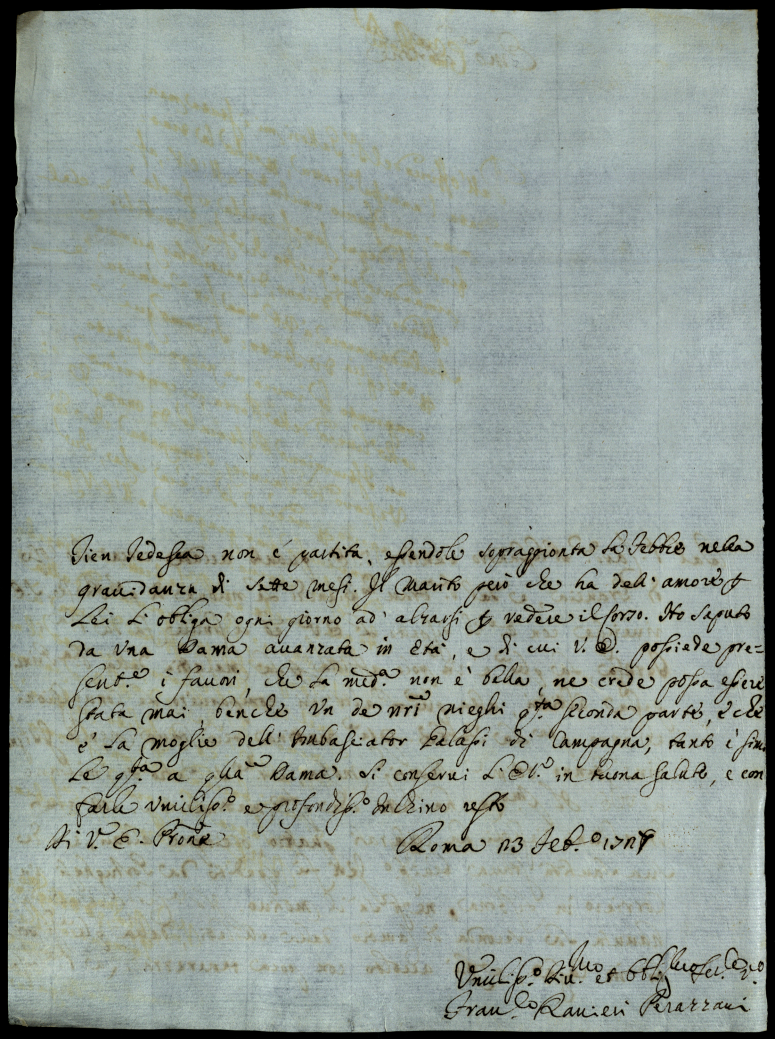 non é partita, essendole sopraggionta la febbre nella
gravidanza di sette mesi. Il Marito però che ha dell' amore p
Lei l' obliga ogni giorno ad' alzarsi p vedere il Corso. Ho saputo
da una Dama avanzata in Età, e di cui V. E. possiede pre=
sent.e i favori, che la med.a non è bella, ne crede possa essere
stata mai, benche un de nri nieghi q.ta seconda parte, e che
è la moglie dell' Ambasciator di Campagna, tanto è simi
le q.ta a qlla Dama. Si conservi l' E. V. in buona salute, e con
farle umiliss.o e profondiss.o Inchino resto
Di V. E. Prone
Roma 23 Feb.o 172
Umiliss.o Div.mo et Obblig.mo
Fran.co Ranieri